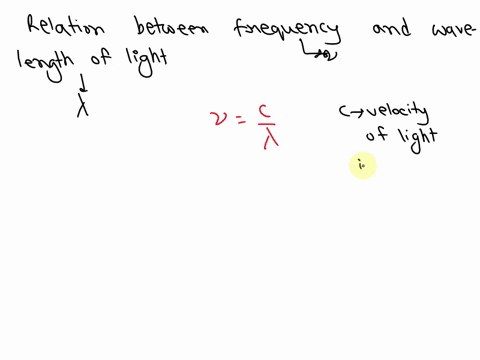 Relation between frequency and wave-
length of light
→ν
↓
λ
ν = c/λ
c→velocity
of light
i